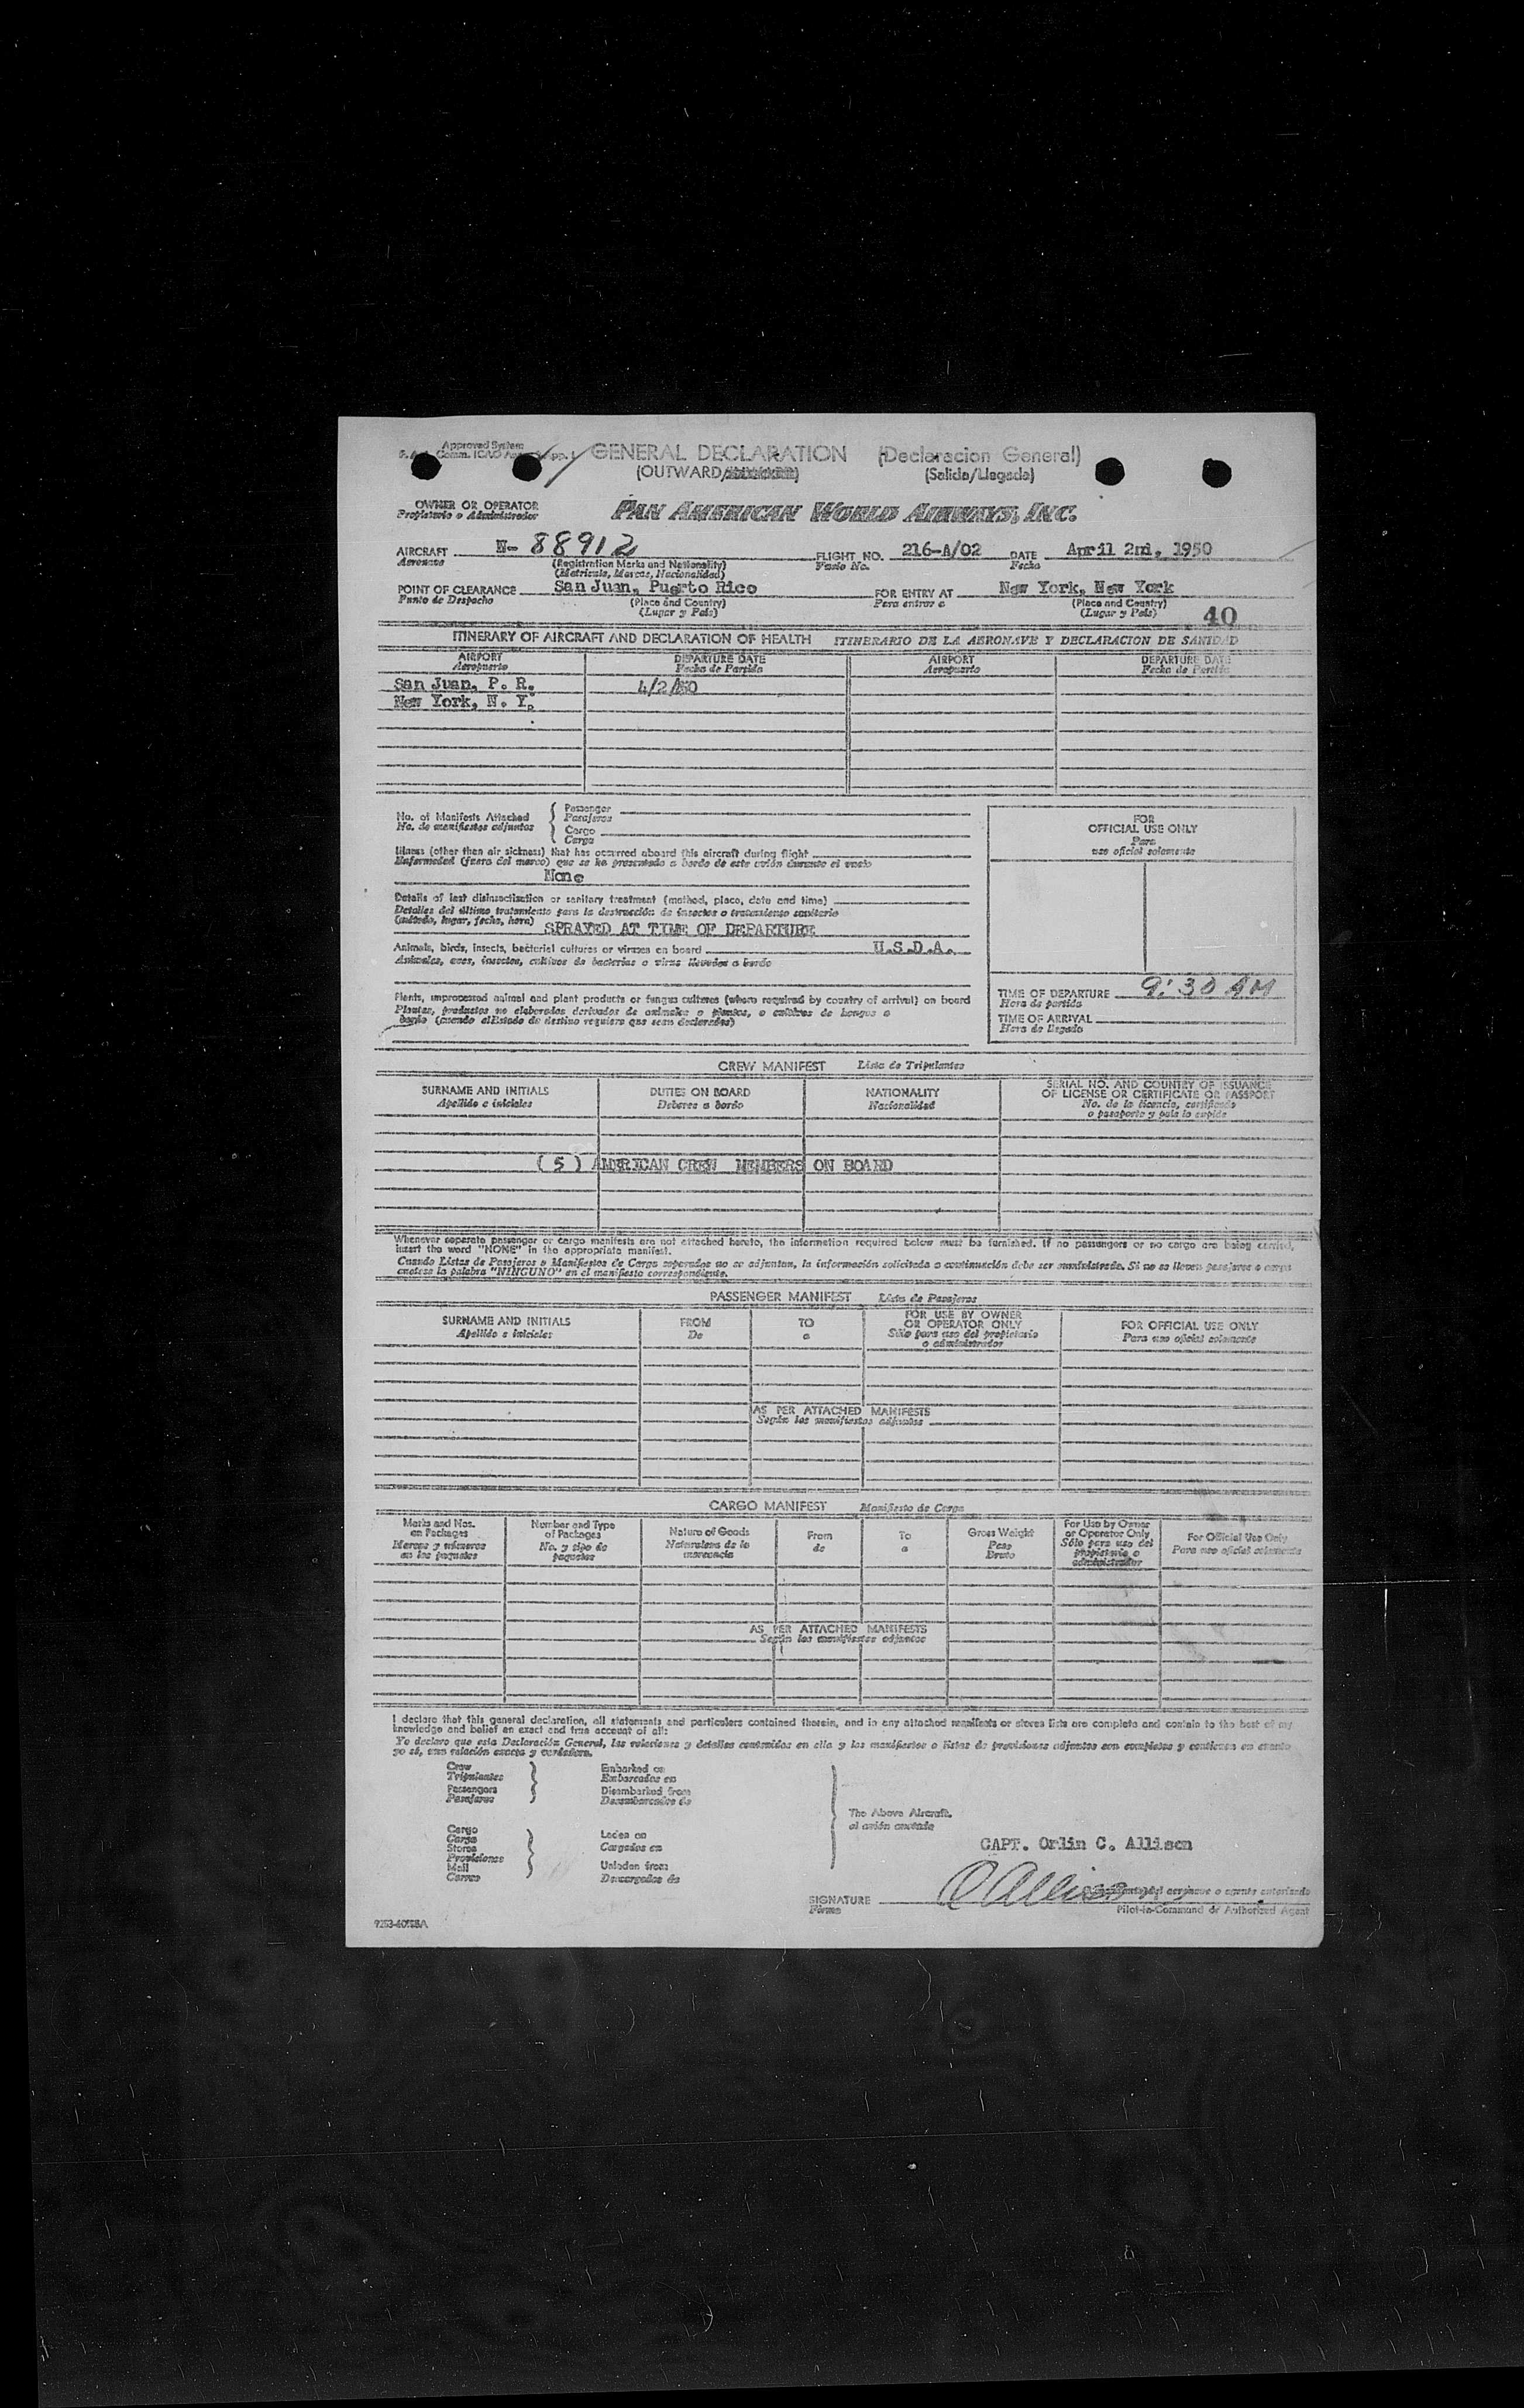 Approved System
GENERAL DECLARATION (Declaracion General)
(OUTWARD/ (Salida/Llegada)
OWNER OR OPERATOR PAN AMERICAN WORLD AIRWAYS, INC.
Propietario o Administrador
AIRCRAFT N- 88912 FLIGHT NO. 216-A/02 DATE April 2nd, 1950
Aeronave (Registration Marks and Nationality) Vuelo No. Fecha
(Matricula, Marcas, Nacionalidad)
POINT OF CLEARANCE San Juan, Puerto Rico FOR ENTRY AT New York, New York
Punto de Despacho (Place and Country) Para entrar a (Place and Country)
(Lugar y País) (Lugar y País) 40
ITINERARY OF AIRCRAFT AND DECLARATION OF HEALTH ITINERARIO DE LA AERONAVE Y DECLARACION DE SANIDAD
AIRPORT DEPARTURE DATE AIRPORT DEPARTURE DATE
Aeropuerto Fecha de Partida Aeropuerto Fecha de Partida
San Juan, P. R. 4/2/50
New York, N. Y.
No. of Manifests Attached Passenger
No. de manifiestos adjuntos Pasajeros
Cargo
Carga
Illness (other than air sickness) that has occurred aboard this aircraft during flight
Enfermedad (fuera del mareo) que se ha presentado a bordo de este avión durante el vuelo
None
Details of last disinsectization or sanitary treatment (method, place, date and time)
Detalles del último tratamiento para la destrucción de insectos o tratamiento sanitario
(método, lugar, fecha, hora) SPRAYED AT TIME OF DEPARTURE
Animals, birds, insects, bacterial cultures or viruses on board U.S.D.A.
Animales, aves, insectos, cultivos de bacterias o virus llevados a bordo
Plants, unprocessed animal and plant products or fungus cultures (where required by country of arrival) on board
Plantas, productos no elaborados derivados de animales o plantas, o cultivos de hongos a
bordo (cuando el Estado de destino requiera que sean declarados)
FOR
OFFICIAL USE ONLY
Para
uso oficial solamente
TIME OF DEPARTURE 9:30 AM
Hora de partida
TIME OF ARRIVAL
Hora de llegada
CREW MANIFEST Lista de Tripulantes
SURNAME AND INITIALS DUTIES ON BOARD NATIONALITY SERIAL NO. AND COUNTRY OF ISSUANCE
OF LICENSE OR CERTIFICATE OR PASSPORT
Apellido e iniciales Deberes a bordo Nacionalidad No. de la licencia, certificado
o pasaporte y país lo expide
( 5 ) AMERICAN CREW MEMBERS ON BOARD
Whenever separate passenger or cargo manifests are not attached hereto, the information required below must be furnished. If no passengers or no cargo are being carried,
insert the word "NONE" in the appropriate manifest.
Cuando Listas de Pasajeros o Manifiestos de Carga separados no se adjuntan, la información solicitada a continuación debe ser suministrada. Si no se llevan pasajeros o carga
anótese la palabra "NINGUNO" en el manifiesto correspondiente.
PASSENGER MANIFEST Lista de Pasajeros
SURNAME AND INITIALS FROM TO FOR USE BY OWNER
OR OPERATOR ONLY FOR OFFICIAL USE ONLY
Apellido e iniciales De a Sólo para uso del propietario
o administrador Para uso oficial solamente
AS PER ATTACHED MANIFESTS
Según los manifiestos adjuntos
CARGO MANIFEST Manifiesto de Carga
Marks and Nos.
on Packages
Marcas y números
en los paquetes
Number and Type
of Packages
No. y tipo de
paquetes
Nature of Goods
Naturaleza de la
mercancía
From
de
To
a
Gross Weight
Peso
Bruto
For Use by Owner
or Operator Only
Sólo para uso del
propietario o
administrador
For Official Use Only
Para uso oficial solamente
AS PER ATTACHED MANIFESTS
Según los manifiestos adjuntos
I declare that this general declaration, all statements and particulars contained therein, and in any attached manifests or stores lists are complete and contain to the best of my
knowledge and belief an exact and true account of all:
Yo declaro que esta Declaración General, las relaciones y detalles contenidos en ella y los manifiestos o listas de provisiones adjuntos son completos y contienen en cuanto
yo sé, una relación exacta y verdadera.
Crew Embarked on
Tripulantes Embarcados en
Passengers Disembarked from
Pasajeros Desembarcados de
The Above Aircraft.
el avión anotado
Cargo
Carga Laden on
Stores Cargados en
Provisiones
Mail Unladen from
Correo Descargados de
CAPT. Orlin C. Allison
SIGNATURE O Allison
Firma
aeronave o agente autorizado
Pilot-in-Command or Authorized Agent